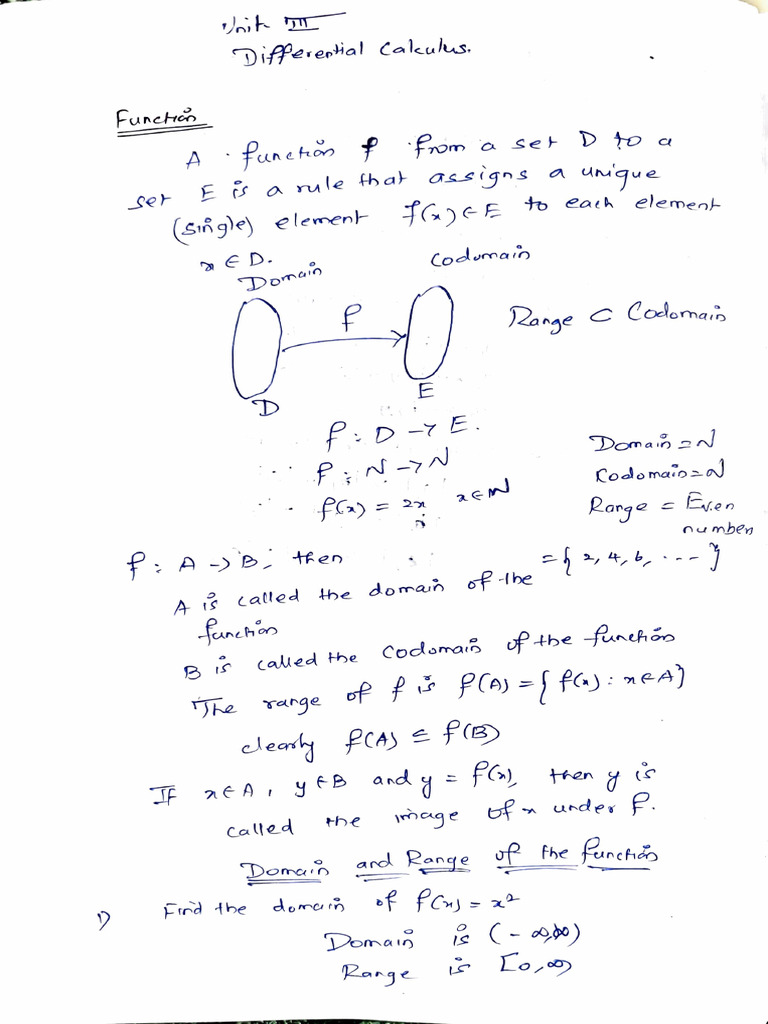 Unit III
Differential Calculus.
Function
A function f from a set D to a
set E is a rule that assigns a unique
(single) element f(x) ∈ E to each element
x ∈ D.
Domain
Codomain
f
Range ⊂ Codomain
D
E
f : D → E.
f : N → N
f(x) = 2x x ∈ N
Domain = N
Codomain = N
Range = Even
number
= { 2, 4, 6, ---- }
f : A → B, then
A is called the domain of the
function
B is called the codomain of the function
The range of f is f(A) = { f(x) : x ∈ A }
clearly f(A) ⊆ f(B)
If x ∈ A, y ∈ B and y = f(x), then y is
called the image of x under f.
Domain and Range of the function
1) Find the domain of f(x) = x²
Domain is (-∞, ∞)
Range is [0, ∞)